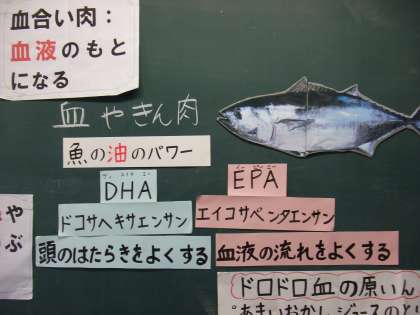 血合い肉:
血液のもと
になる
血やきん肉
魚の油のパワー
DHA
EPA
ドコサヘキサエンサン
エイコサペンタエンサン
頭のはたらきをよくする
血液の流れをよくする
ドロドロ血の原いん
あまいおかし ジュースのとり
や
ぶ